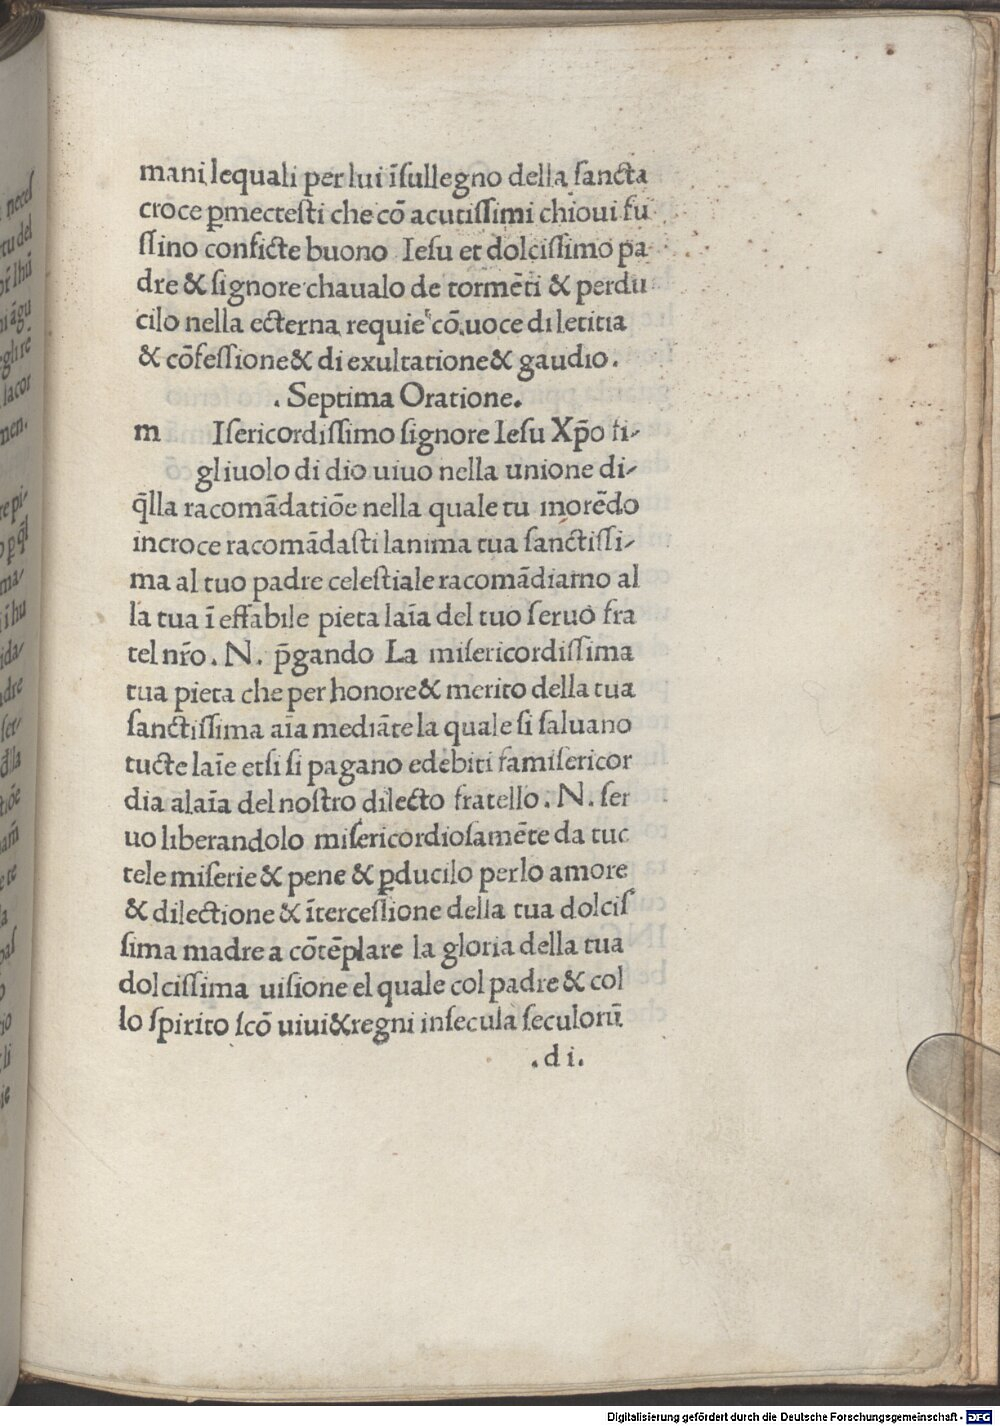 mani lequali per lui īsullegno della sancta
croce ꝑmectesti che cō acutissimi chioui fu
ssino conficte buono Iesu et dolcissimo pa
dre & signore chaualo de tormēti & perdu
cilo nella ecterna requie cō uoce di letitia
& cōfessione & di exultatione & gaudio.
. Septima Oratione.
m Isericordissimo signore Iesu Xp̄o fi-
gliuolo di dio uiuo nella unione di-
q̄lla racomādatiōe nella quale tu morēdo
incroce racomādasti lanima tua sanctissi-
ma al tuo padre celestiale racomādiamo al
la tua ī effabile pieta laīa del tuo seruo fra
tel nr̄o. N. p̄gando La misericordissima
tua pieta che per honore & merito della tua
sanctissima aīa mediāte la quale si saluano
tucte laīe etsi si pagano edebiti famisericor
dia alaīa del nostro dilecto fratello. N. ser
uo liberandolo misericordiosamēte da tuc
tele miserie & pene & ꝑducilo perlo amore
& dilectione & ītercessione della tua dolcis
sima madre a cōtēplare la gloria della tua
dolcissima uisione el quale col padre & col
lo spirito scō uiui & regni insecula seculorū
. d i.
Digitalisierung gefördert durch die Deutsche Forschungsgemeinschaft - DFG